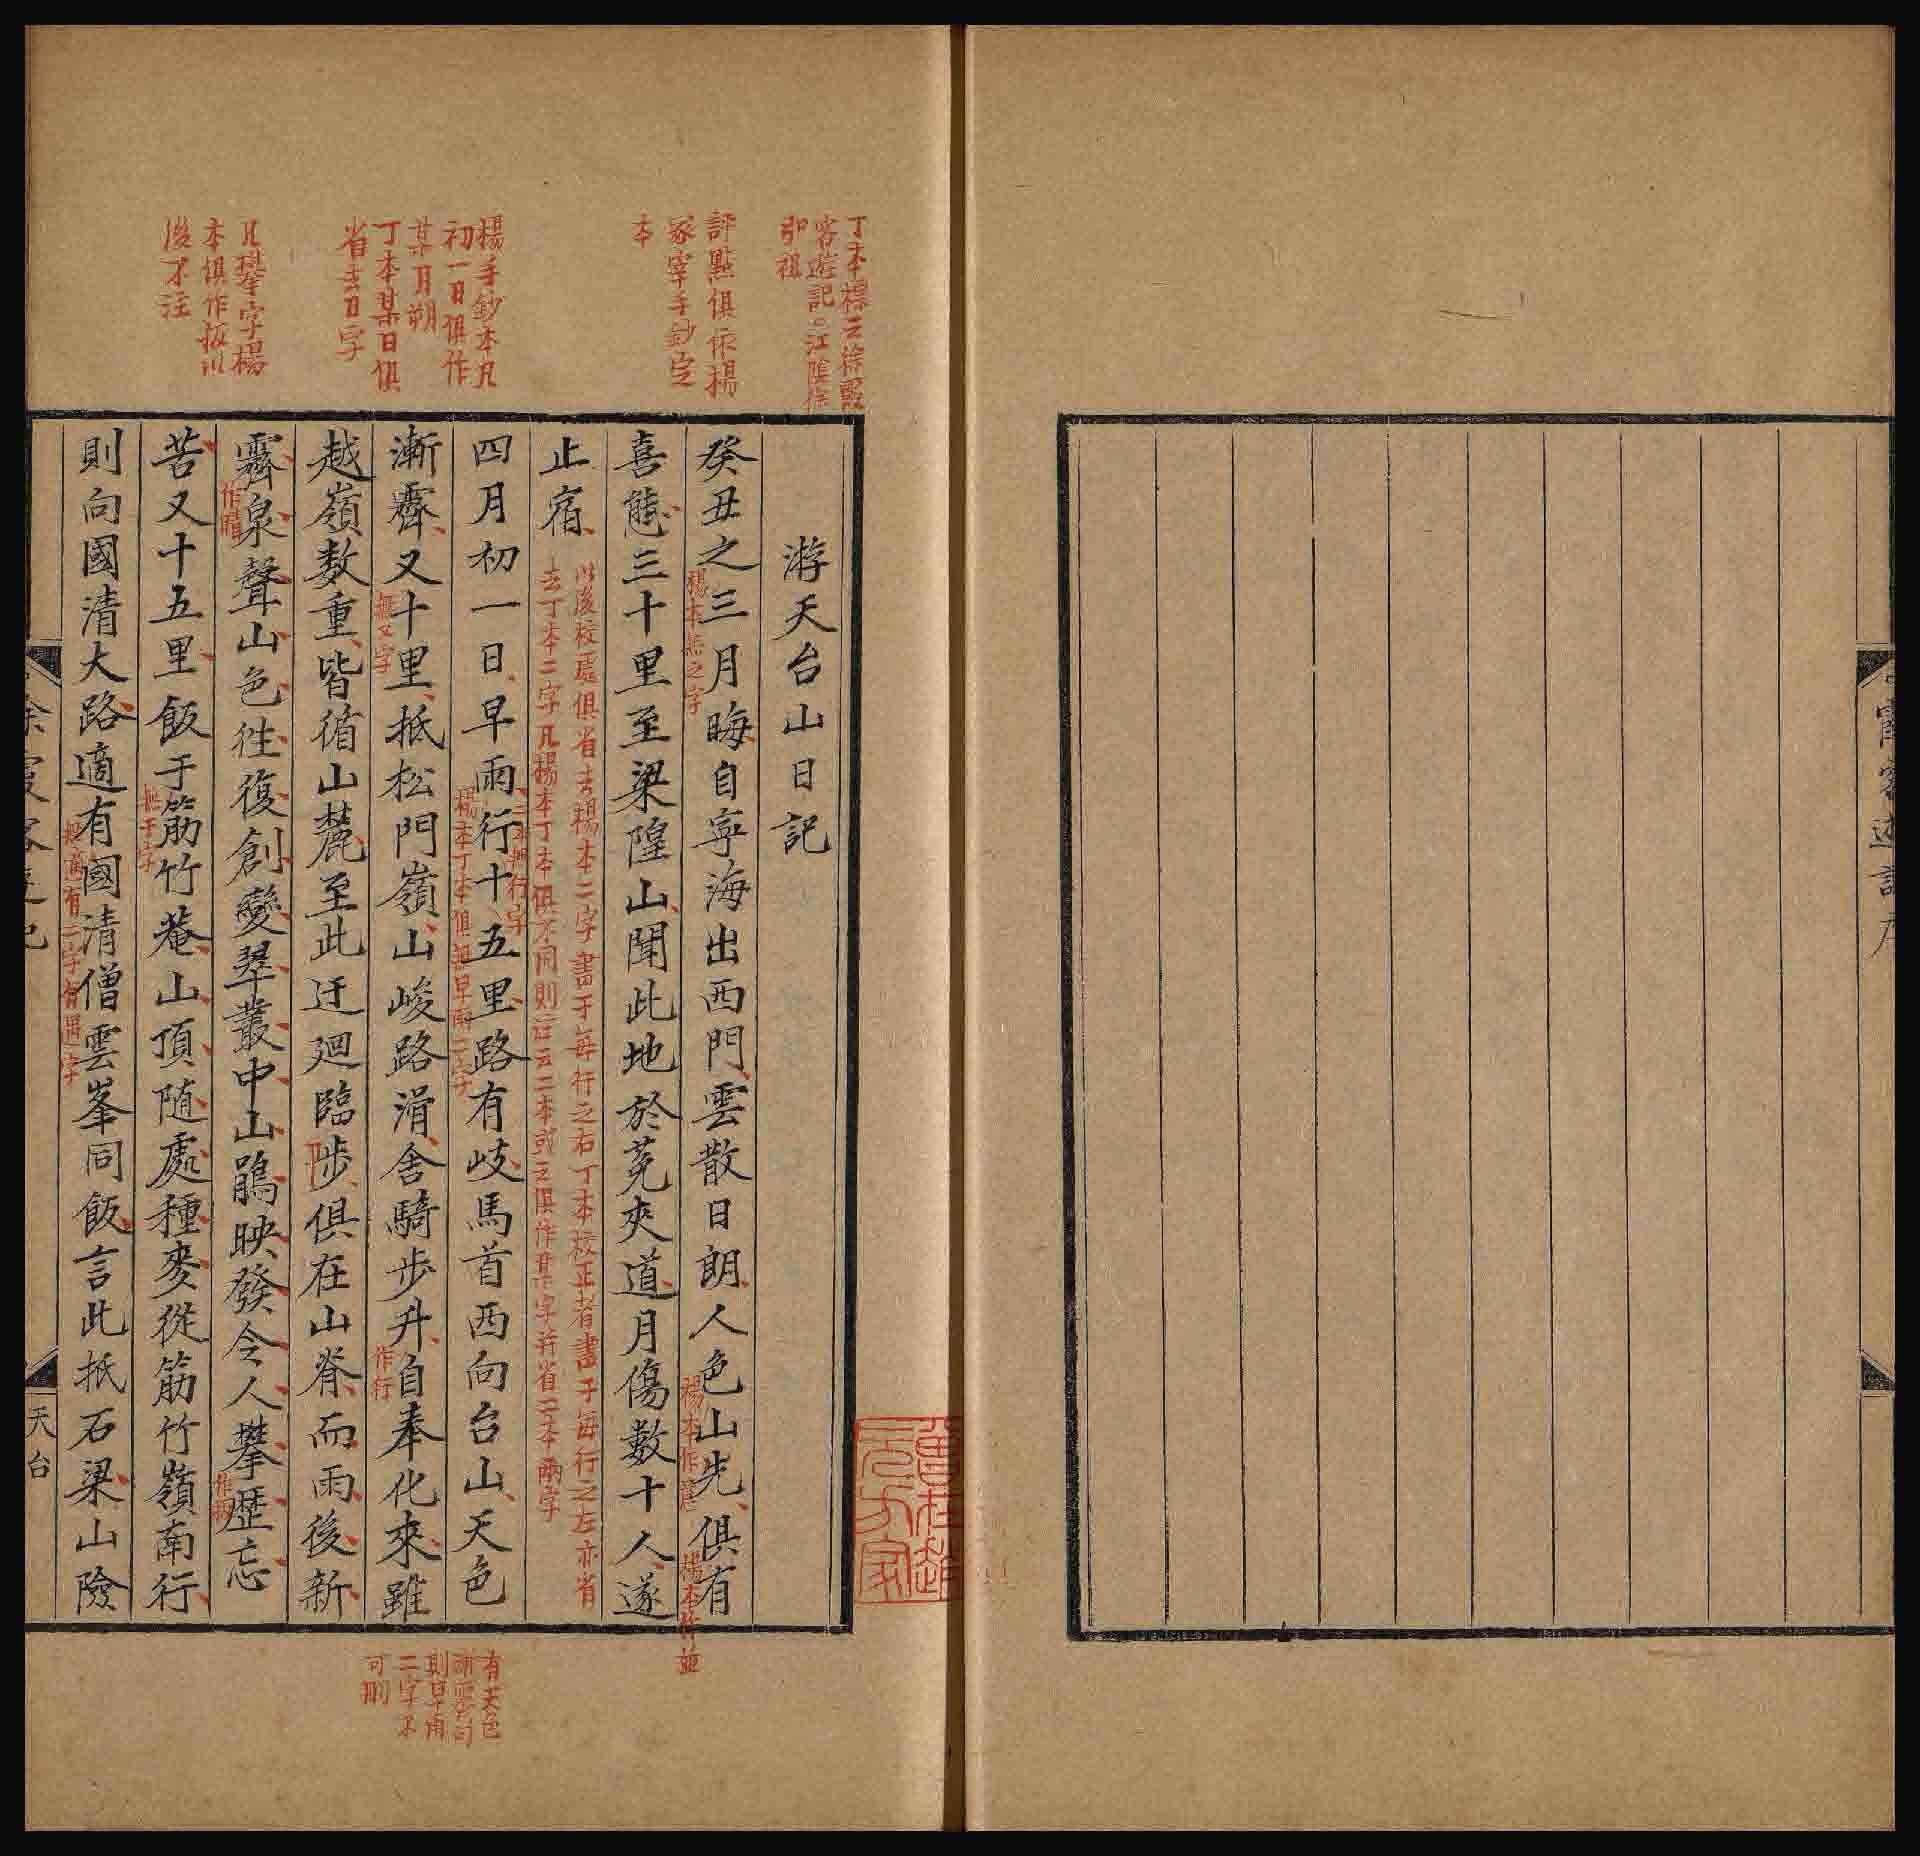 霞客遊記序
丁本標云徐霞
客遊記。江陰徐
弘祖
評點俱依楊
冢宰手鈔定
本
楊手鈔本凡
初一日俱作
某月朔
丁本某日俱
省去日字
凡攀字楊
本俱作扳
後不注
游天台山日記
癸丑之三月晦自寧海出西門雲散日朗人色山光俱有
楊本無之字
楊本作意
楊本作並
喜態三十里至梁隍山聞此地於菟夾道月傷數十人遂
止宿
以後校處俱省去楊本二字書于每行之右丁本校正者書于每行之左亦省
去丁本二字凡楊本丁本俱不同則云二本或云俱作某字并省二本兩字
四月初一日早雨行十五里路有歧馬首西向台山天色
二本無行字
楊本丁本俱無早雨二字
漸霽又十里抵松門嶺山峻路滑舍騎步升自奉化來雖
無又字
作行
越嶺數重皆循山麓至此迂迴臨陟俱在山脊而雨後新
霽泉聲山色往復創變翠叢中山鵑映發令人攀歷忘
作晴
苦又十五里飯于筋竹菴山頂随處種麥從筋竹嶺南行
無于字
則向國清大路適有國清僧雲峯同飯言此抵石梁山險
無適有二字有遇字
有天色
漸霽句
則早雨
二字不
可刪
徐霞客遊記
天台